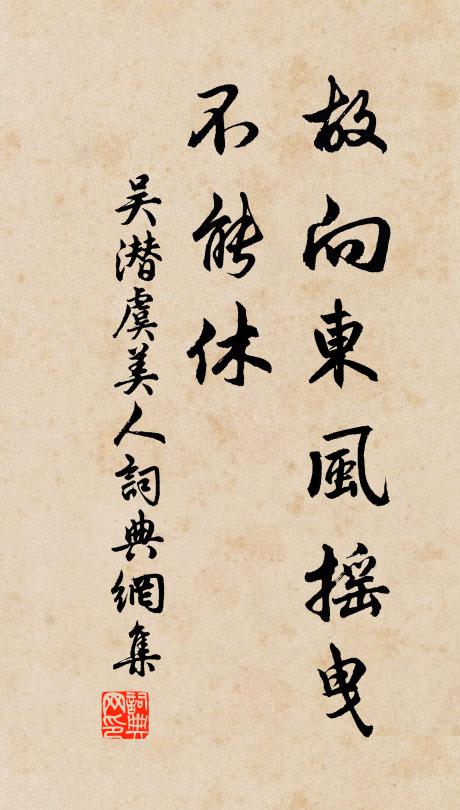 故向東風摇曳
不能休
吴潜虞美人詞典網集
詞典网印